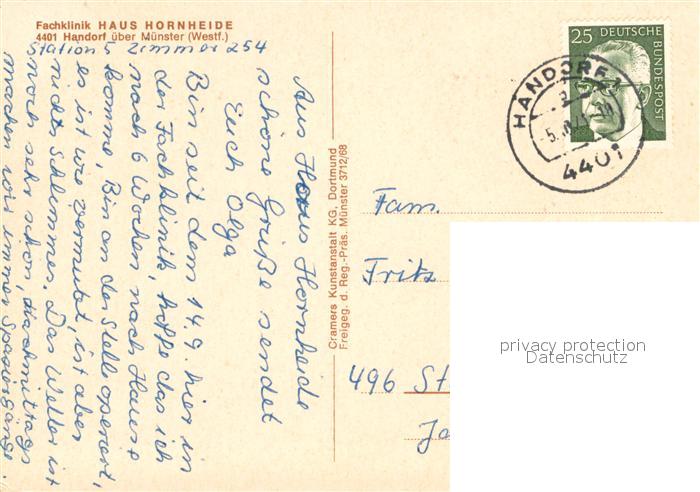 Fachklinik HAUS HORNHEIDE
4401 Handorf über Münster (Westf.)
Station 5 Zimmer 254
Aus Haus Hornheide
schöne Grüße sendet
Euch Olga
Bin seit dem 14.9. hier in
der Fachklinik, hoffe das ich
nach 6 Wochen nach Hause
komme, Bin an der Stelle operiert,
es ist wie vermutet, ist aber
nichts Schlimmes. Das Wetter ist
noch sehr schön, Nachmittags
machen wir immer Spaziergänge.
Cramers Kunstanstalt KG, Dortmund
Freigeg. d. Reg.-Präs. Münster 3712/68
25 DEUTSCHE
BUNDESPOST
HANDORF
4401
Fam.
Fritz
496 St
Ja
privacy protection
Datenschutz